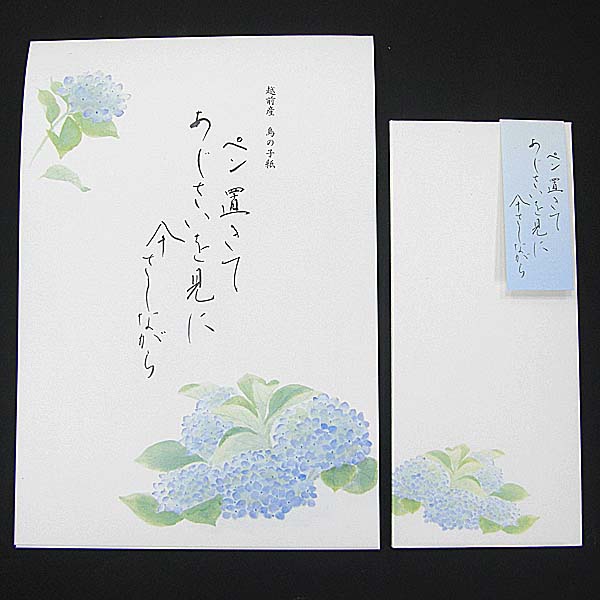 越前産 鳥の子紙
ペン置きて
あじさいを見に
傘さしながら
ペン置きて
あじさいを見に
傘さしながら